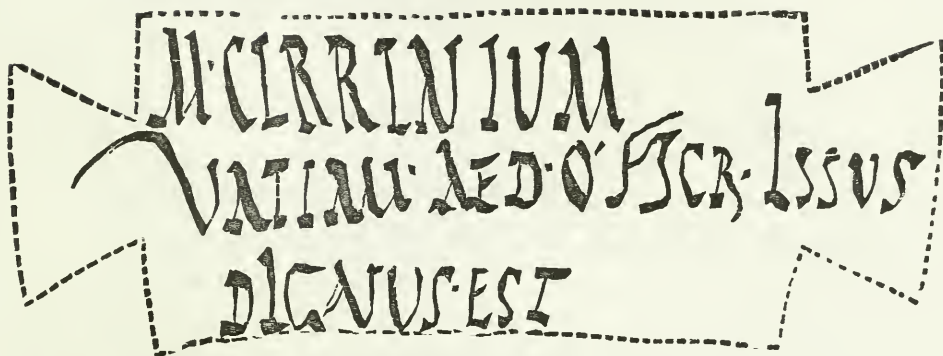 M·CERRINIUM
VATIAM·AED·OVF SCR·ISSUS
DIGNUS·EST